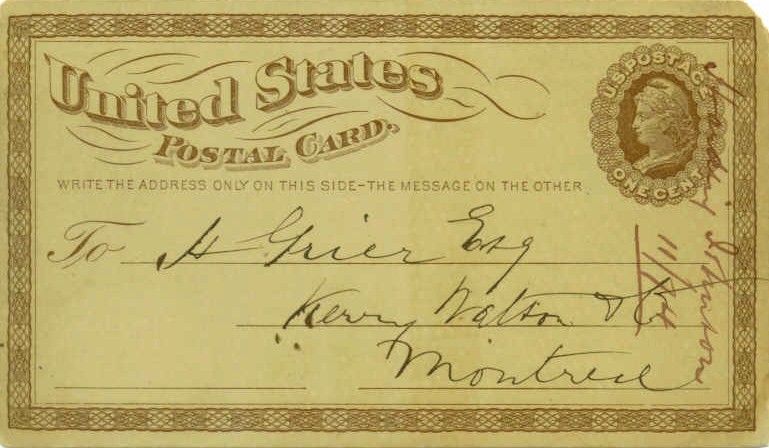 United States
POSTAL CARD.
U.S. POSTAGE
ONE CENT
WRITE THE ADDRESS ONLY ON THIS SIDE–THE MESSAGE ON THE OTHER
To H Grier Esq
Kerry Watson & Co
Montreal
Johnson